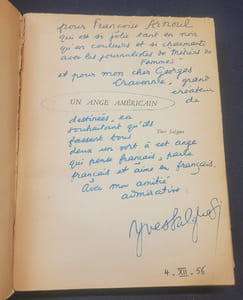 pour Françoise Arnoul
qui est si jolie tant en noir
qu'en couleurs et si charmante
avec les journalistes de "Métiers de
Femmes"
et pour mon cher Georges
Cravenne, grand
créateur
de
UN ANGE AMÉRICAIN
destinées, en
souhaitant qu'ils
fassent tous
Yves Salgues
deux un sort à cet ange
qui pense français, parle
français et aime en français.
Avec mon amitié
admirative
Yves Salgues
4. XII. 56